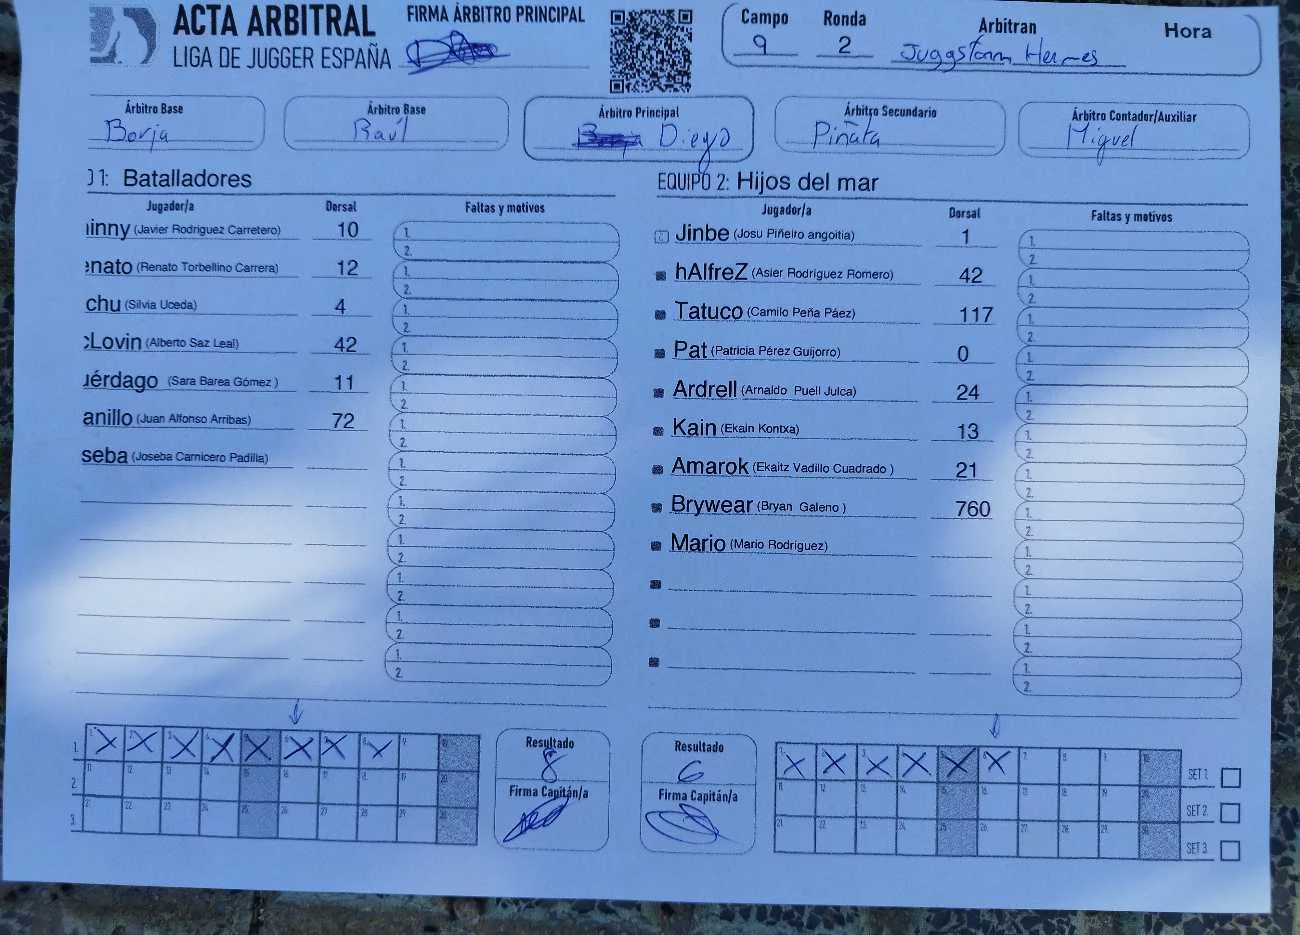 ACTA ARBITRAL
LIGA DE JUGGER ESPAÑA
FIRMA ÁRBITRO PRINCIPAL
Campo
9
Ronda
2
Arbitran
Juggstorm Hermes
Hora
Árbitro Base
Borja
Árbitro Base
Raúl
Árbitro Principal
Diego
Árbitro Secundario
Piñata
Árbitro Contador/Auxiliar
Miguel
1: Batalladores
Jugador/a Dorsal Faltas y motivos
inny (Javier Rodriguez Carretero) 10 1. 2.
enato (Renato Torbellino Carrera) 12 1. 2.
chu (Silvia Uceda) 4 1. 2.
Lovin (Alberto Saz Leal) 42 1. 2.
érdago (Sara Barea Gómez ) 11 1. 2.
anillo (Juan Alfonso Arribas) 72 1. 2.
seba (Joseba Carnicero Padilla) 1. 2.
1. 2.
1. 2.
1. 2.
1. 2.
1. 2.
EQUIPO 2: Hijos del mar
Jugador/a Dorsal Faltas y motivos
Jinbe (Josu Piñeiro angoitia) 1 1. 2.
hAlfreZ (Asier Rodríguez Romero) 42 1. 2.
Tatuco (Camilo Peña Páez) 117 1. 2.
Pat (Patricia Pérez Guijorro) 0 1. 2.
Ardrell (Arnaldo Puell Julca) 24 1. 2.
Kain (Ekain Kontxa) 13 1. 2.
Amarok (Ekaitz Vadillo Cuadrado ) 21 1. 2.
Brywear (Bryan Galeno ) 760 1. 2.
Mario (Mario Rodríguez) 1. 2.
1. 2.
1. 2.
1. 2.
1. X X X X X X X X 9
2. 11 12 13 14 15 16 17 18 19 20
3. 21 22 23 24 25 26 27 28 29 30
Resultado
8
Firma Capitán/a
Resultado
6
Firma Capitán/a
X X X X X X 7 8 9 10 SET 1
11 12 13 14 15 16 17 18 19 20 SET 2
21 22 23 24 25 26 27 28 29 30 SET 3